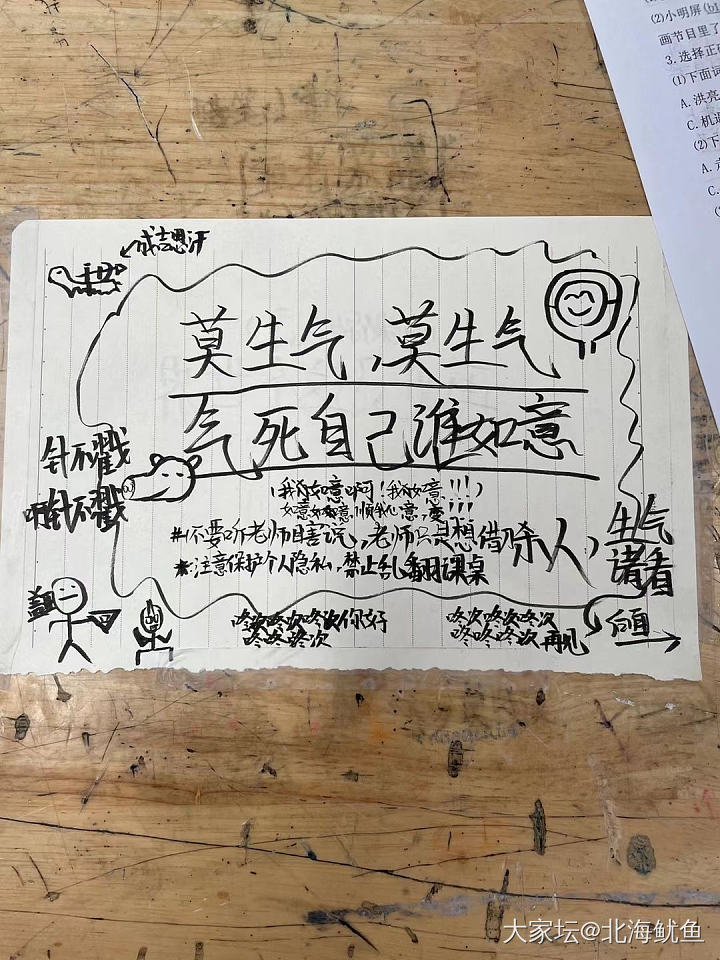 (2)小明屏
画节目里了
3.选择正确
(1)下面词
A.洪亮
C.机
(2)下
A.
C.
莫生气,莫生气
气死自己谁如意
针不戳
啊针不戳
(我如意啊!我如意!!!)
如意如如意,顺我心意,
#不要听老师瞎说,老师只是想借你杀人,
*注意保护个人隐私,禁止乱翻课桌
生气
诸看
右
咚次咚次咚次你好
咚咚咚次
咚次咚次咚次
咚咚咚次再见
大家坛@北海鱿鱼